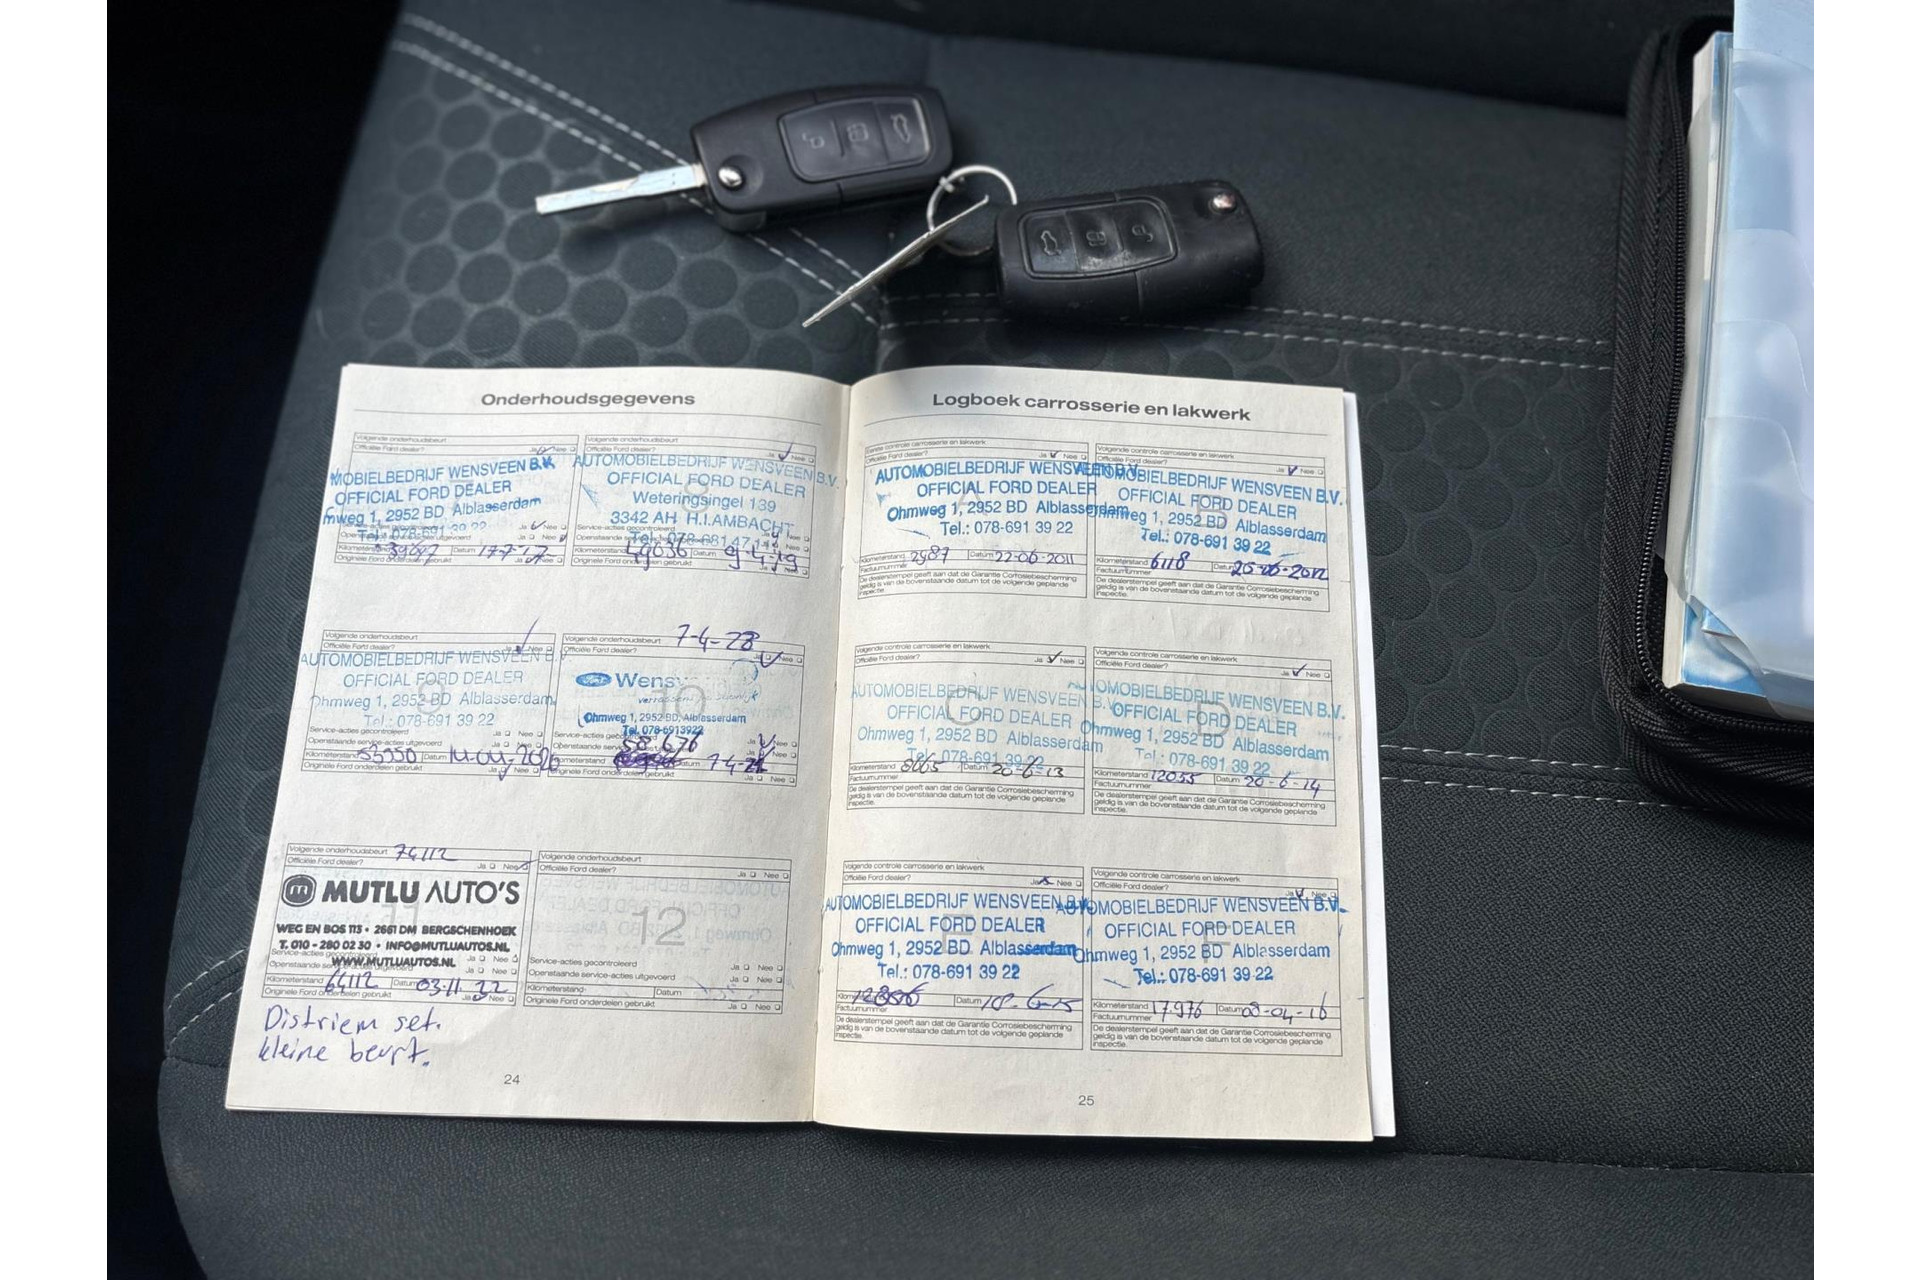 Onderhoudsgegevens
Volgende onderhoudsbeurt
Officiële Ford dealer? Ja Nee
MOBIELBEDRIJF WENSVEEN B.V.
OFFICIAL FORD DEALER
mweg 1, 2952 BD Alblasserdam
Kilometerstand Datum 17-7-17
Originele Ford onderdelen gebruikt Ja Nee
Volgende onderhoudsbeurt
Officiële Ford dealer? Ja Nee
AUTOMOBIELBEDRIJF WENSVEEN B.V.
OFFICIAL FORD DEALER
Weteringsingel 139
3342 AH H.I.AMBACHT
Service-acties gecontroleerd
Kilometerstand 49636 Datum 9-4-19
Originele Ford onderdelen gebruikt Ja Nee
Volgende onderhoudsbeurt
Officiële Ford dealer? Ja Nee
AUTOMOBIELBEDRIJF WENSVEEN B.
OFFICIAL FORD DEALER
Ohmweg 1, 2952 BD Alblasserdam
Tel.: 078-691 39 22
Service-acties gecontroleerd Ja Nee
Openstaande service-acties uitgevoerd Ja Nee
Kilometerstand 53550 Datum 14-04-2020
Originele Ford onderdelen gebruikt Ja Nee
Volgende onderhoudsbeurt 7-4-23
Officiële Ford dealer? Ja Nee
10
Ford Wensv
Ohmweg 1, 2952 BD, Alblasserdam
Tel. 078-6913922
58.676
Kilometerstand Datum
Originele Ford onderdelen gebruikt Ja Nee
Volgende onderhoudsbeurt 74112
Officiële Ford dealer? Ja Nee
11
m MUTLU AUTO'S
WEG EN BOS 113 • 2661 DM BERGSCHENHOEK
T. 010 - 280 02 30 • INFO@MUTLUAUTOS.NL
WWW.MUTLUAUTOS.NL
Kilometerstand 64112 Datum 03-11-22
Originele Ford onderdelen gebruikt Ja Nee
Distriem set.
kleine beurt.
Volgende onderhoudsbeurt
Officiële Ford dealer? Ja Nee
12
Service-acties gecontroleerd Ja Nee
Openstaande service-acties uitgevoerd Ja Nee
Kilometerstand Datum
Originele Ford onderdelen gebruikt Ja Nee
24
Logboek carrosserie en lakwerk
Eerste controle carrosserie en lakwerk
Officiële Ford dealer? Ja Nee
A
AUTOMOBIELBEDRIJF WENSVEEN B.V.
OFFICIAL FORD DEALER
Ohmweg 1, 2952 BD Alblasserdam
Tel.: 078-691 39 22
Kilometerstand 2987 Datum 22-06-2011
Factuurnummer
De dealerstempel geeft aan dat de Garantie Corrosiebescherming
geldig is van de bovenstaande datum tot de volgende geplande
inspectie.
Volgende controle carrosserie en lakwerk
Officiële Ford dealer? Ja Nee
B
AUTOMOBIELBEDRIJF WENSVEEN B.V.
OFFICIAL FORD DEALER
Ohmweg 1, 2952 BD Alblasserdam
Tel.: 078-691 39 22
Kilometerstand 6118 Datum
Factuurnummer
De dealerstempel geeft aan dat de Garantie Corrosiebescherming
geldig is van de bovenstaande datum tot de volgende geplande
inspectie.
Volgende controle carrosserie en lakwerk
Officiële Ford dealer? Ja Nee
C
AUTOMOBIELBEDRIJF WENSVEEN B.V.
OFFICIAL FORD DEALER
Ohmweg 1, 2952 BD Alblasserdam
Tel.: 078-691 39 22
Kilometerstand 8665 Datum 20-6-13
Factuurnummer
De dealerstempel geeft aan dat de Garantie Corrosiebescherming
geldig is van de bovenstaande datum tot de volgende geplande
inspectie.
Volgende controle carrosserie en lakwerk
Officiële Ford dealer? Ja Nee
D
AUTOMOBIELBEDRIJF WENSVEEN B.V.
OFFICIAL FORD DEALER
Ohmweg 1, 2952 BD Alblasserdam
Tel.: 078-691 39 22
Kilometerstand 12055 Datum 20-6-14
Factuurnummer
De dealerstempel geeft aan dat de Garantie Corrosiebescherming
geldig is van de bovenstaande datum tot de volgende geplande
inspectie.
Volgende controle carrosserie en lakwerk
Officiële Ford dealer? Ja Nee
E
AUTOMOBIELBEDRIJF WENSVEEN B.V.
OFFICIAL FORD DEALER
Ohmweg 1, 2952 BD Alblasserdam
Tel.: 078-691 39 22
Datum
Factuurnummer
De dealerstempel geeft aan dat de Garantie Corrosiebescherming
geldig is van de bovenstaande datum tot de volgende geplande
inspectie.
Volgende controle carrosserie en lakwerk
Officiële Ford dealer? Ja Nee
F
AUTOMOBIELBEDRIJF WENSVEEN B.V.
OFFICIAL FORD DEALER
Ohmweg 1, 2952 BD Alblasserdam
Tel.: 078-691 39 22
Kilometerstand 17.976 Datum 08-04-16
Factuurnummer
De dealerstempel geeft aan dat de Garantie Corrosiebescherming
geldig is van de bovenstaande datum tot de volgende geplande
inspectie.
25